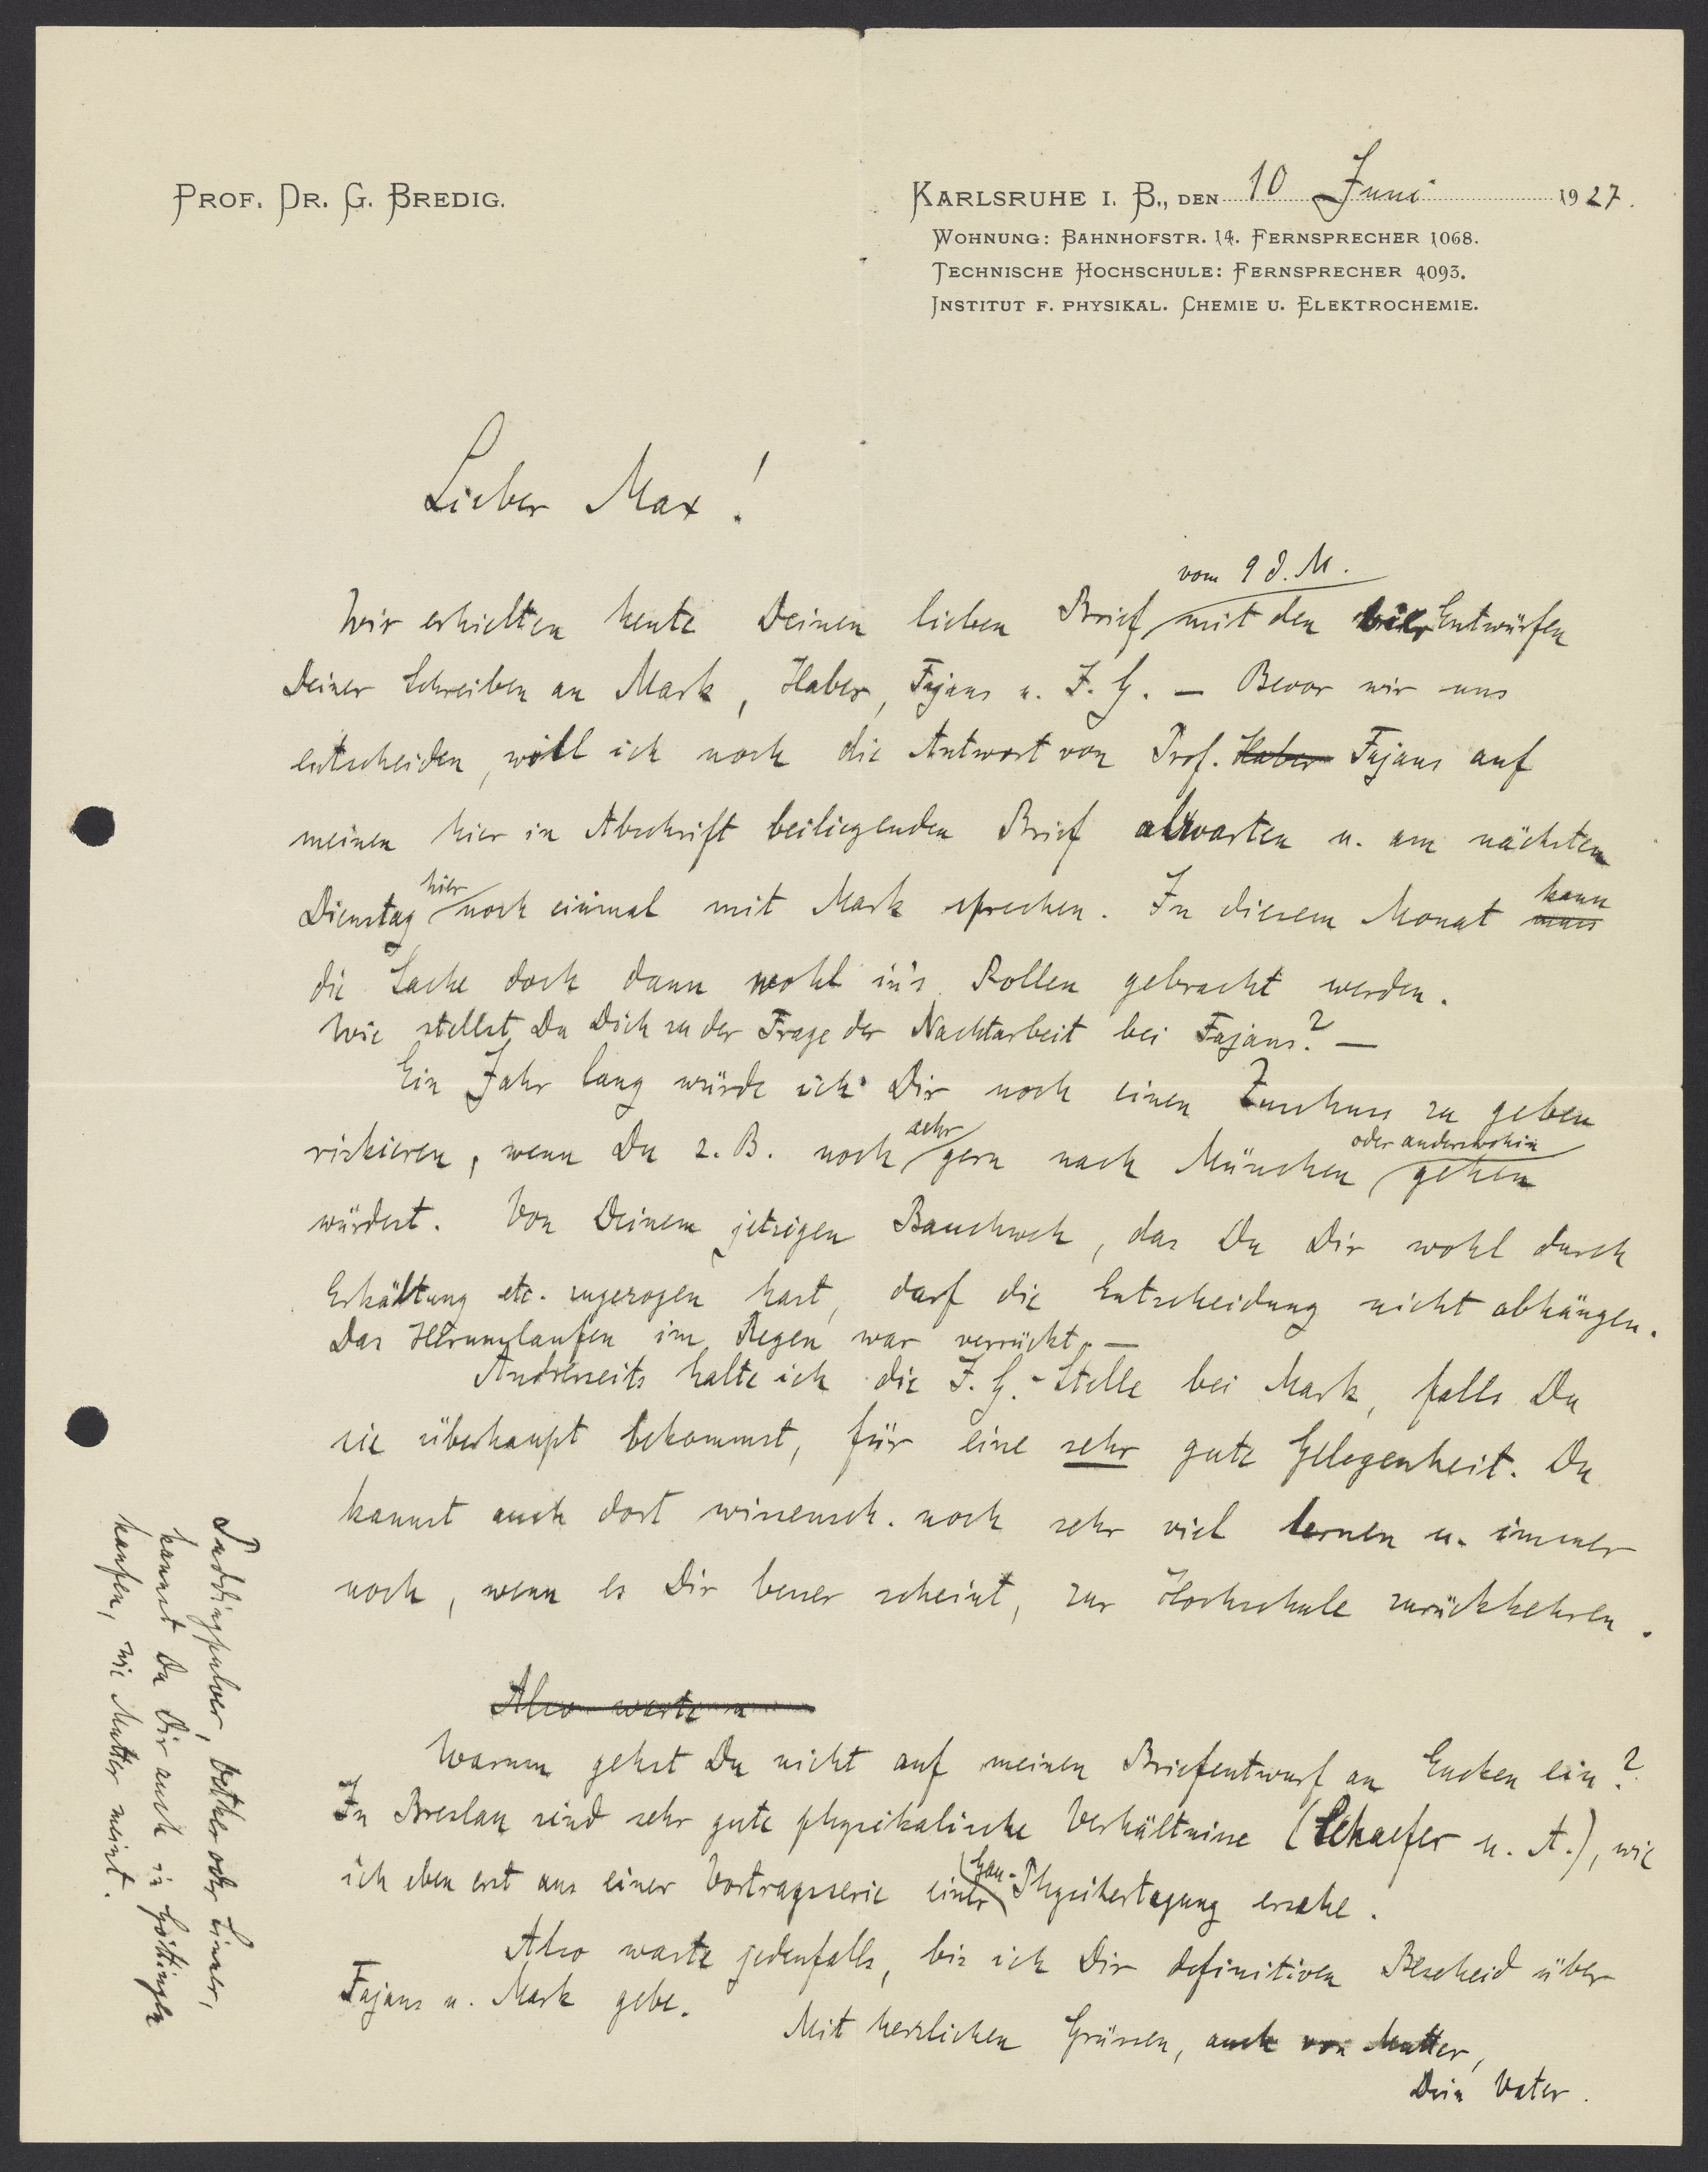 PROF. DR. G. BREDIG.
KARLSRUHE I. B., DEN 10 Juni 1927.
WOHNUNG: BAHNHOFSTR. 14. FERNSPRECHER 1068.
TECHNISCHE HOCHSCHULE: FERNSPRECHER 4093.
INSTITUT F. PHYSIKAL. CHEMIE U. ELEKTROCHEMIE.
Lieber Max!
vom 9 d. M.
Wir erhielten heute Deinen lieben Brief mit den vier Entwürfen
Deiner Schreiben an Mark, Haber, Fajans u. I. G. — Bevor wir uns
entscheiden, will ich noch die Antwort von Prof. Haber Fajans auf
meinen hier in Abschrift beiliegenden Brief abwarten u. am nächsten
Dienstag hier noch einmal mit Mark sprechen. In diesem Monat muss kann
die Sache doch dann wohl in's Rollen gebracht werden.
Wie stellst Du Dich zu der Frage der Nachtarbeit bei Fajans? —
Ein Jahr lang würde ich Dir noch einen Zuschuss zu geben
riskieren, wenn Du z. B. noch sehr gern nach München oder anderswohin gehen
würdest. Von Deinem jetzigen Bauchweh, das Du Dir wohl durch
Erkältung etc. zugezogen hast, darf die Entscheidung nicht abhängen.
Das Herumlaufen im Regen war verrückt. —
Andrerseits halte ich die I. G. - Stelle bei Mark, falls Du
sie überhaupt bekommst, für eine sehr gute Gelegenheit. Du
kannst auch dort wissensch. noch sehr viel lernen u. immer
noch, wenn es Dir besser scheint, zur Hochschule zurückkehren.
Also warte u
Warum gehst Du nicht auf meinen Briefentwurf an Eucken ein?
In Breslau sind sehr gute physikalische Verhältnisse (Schaefer u. A.), wie
ich eben erst aus einer Vortragsserie einer Gau-Physikertagung ersehe.
Also warte jedenfalls, bis ich Dir definitiven Bescheid über
Fajans u. Mark gebe.
Mit herzlichen Grüssen, auch von Mutter,
Dein Vater.
Puddingpulver, Oetker oder Liner,
kannst Du Dir auch in Göttingen
kaufen, wie Mutter meint.